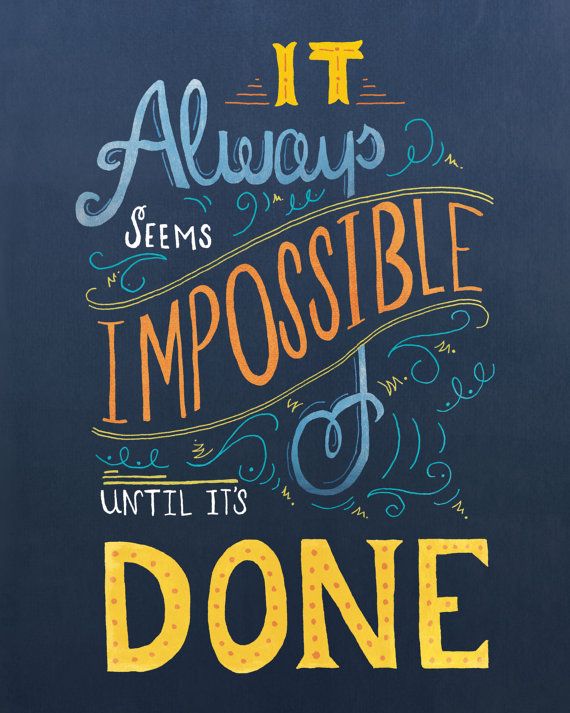 IT
Always
SEEMS
IMPOSSIBLE
UNTIL IT'S
DONE